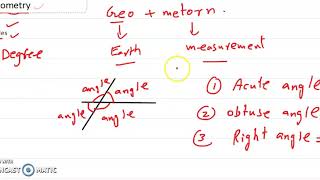 ometry
Geo + metorn.
Degree
Earth
measurement
angle
angle
angle
angle
① Acute angle
② obtuse angle
③ Right angle =
with
NCAST MATIC